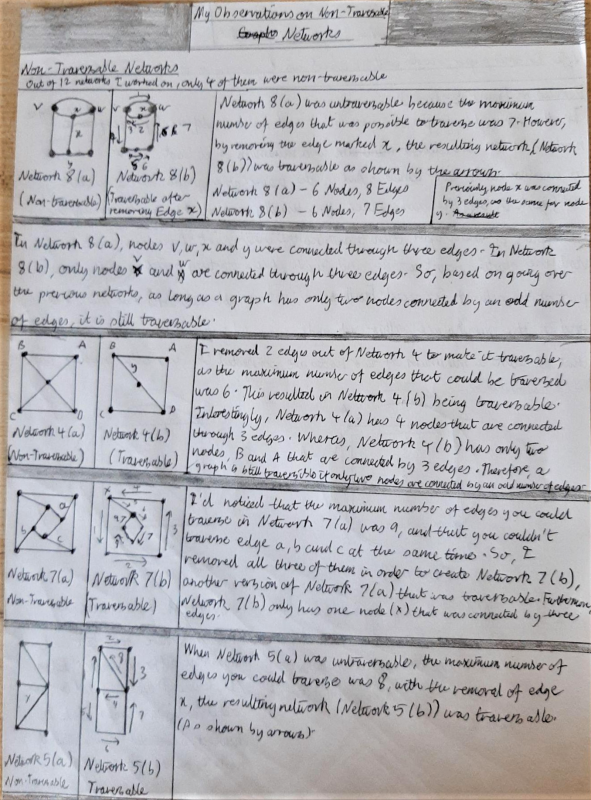 My Observations on Non-Traversable
Graphs Networks
Non-Traversable Networks
Out of 12 networks I worked on, only 4 of them were non-traversable
V w
x
y
Network 8(a)
(Non-traversable)
V w
Network 8(b)
(Traversable after
removing Edge x)
Network 8(a) was untraversable because the maximum
number of edges that was possible to traverse was 7. However,
by removing the edge marked x, the resulting network (Network
8(b)) was traversable as shown by the arrows.
Network 8(a) - 6 Nodes, 8 Edges
Network 8(b) - 6 Nodes, 7 Edges
Previously node x was connected
by 3 edges, as the same for node
y.
In Network 8(a), nodes V, w, x and y were connected through three edges. In Network
8(b), only nodes V and w are connected through three edges. So, based on going over
the previous networks, as long as a graph has only two nodes connected by an odd number
of edges, it is still traversable.
B A
C D
Network 4(a)
(Non-Traversable)
B A
y
C D
Network 4(b)
(Traversable)
I removed 2 edges out of Network 4 to make it traversable,
as the maximum number of edges that could be traversed
was 6. This resulted in Network 4(b) being traversable.
Interestingly, Network 4(a) has 4 nodes that are connected
through 3 edges. Wheras, Network 4(b) has only two
nodes, B and A that are connected by 3 edges. Therefore a
graph is still traversible if only two nodes are connected by an odd number of edges.
a
b
c
Network 7(a)
Non-Traversable
x
Network 7(b)
(Traversable)
I'd noticed that the maximum number of edges you could
traverse in Network 7(a) was 9, and that you couldn't
traverse edge a, b and c at the same time. So, I
removed all three of them in order to create Network 7(b),
another version of Network 7(a) that was traversable. Furthermore,
Network 7(b) only has one node (x) that was connected by three
edges.
x
Network 5(a)
Non-Traversable
2
8
3
4
7
Network 5(b)
Traversable
When Network 5(a) was untraversable, the maximum number of
edges you could traverse was 8, with the removal of edge
x, the resulting network (Network 5(b)) was traversable.
(As shown by arrows).